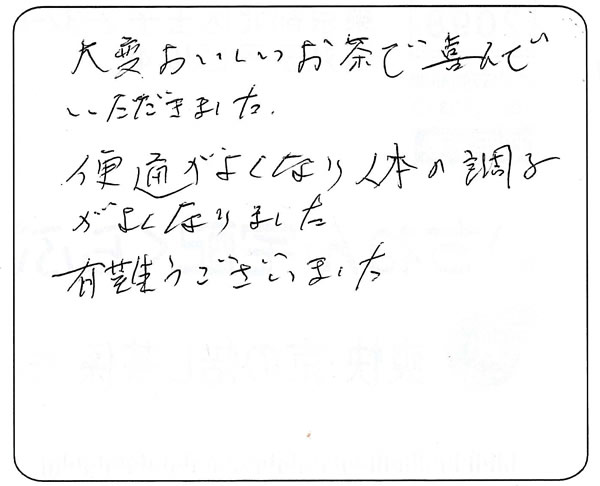 大変おいしいお茶で喜んで
いただきました.
便通がよくなり体の調子
がよくなりました
有難うございました